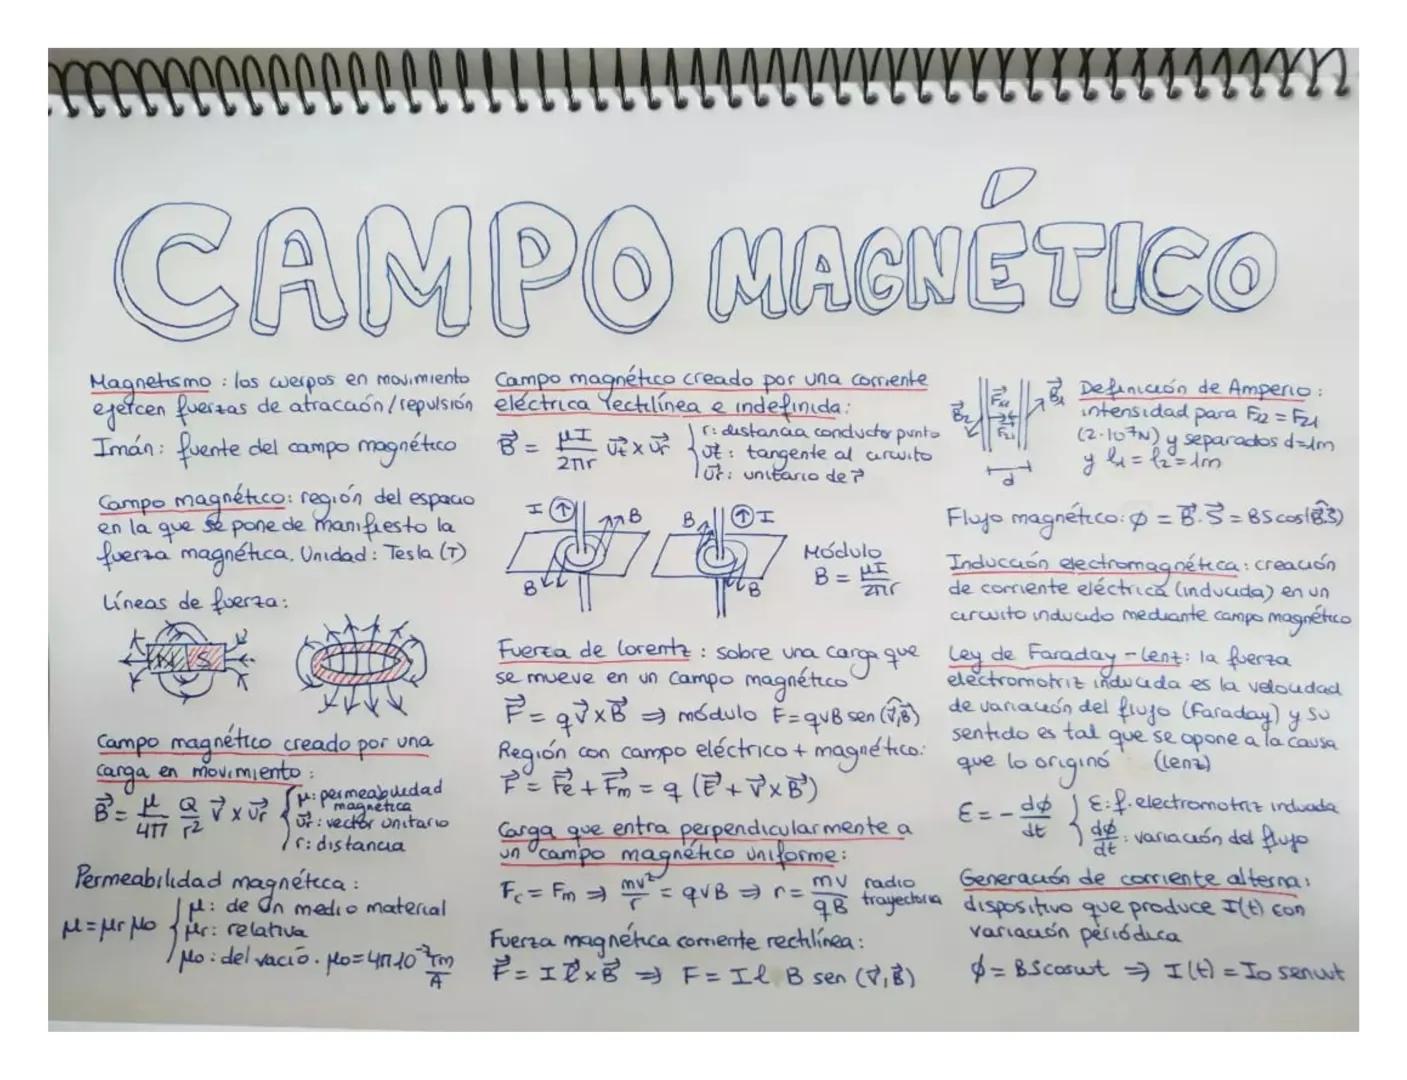 CAMPO MAGNÉTICO
Magnetismo : los cuerpos en movimiento
ejercen fuerzas de atracción/repulsión
Imán: fuente del campo magnético
Campo magnético: región del espacio
en la que se pone de manifiesto la
fuerza magnética. Unidad: Tesla (T)
Líneas de fuerza:
N S
Campo magnético creado por una
carga en movimiento :
B⃗ = μ/4π Q/r² v⃗ x u⃗r
μ: permeabilidad
magnética
u⃗r: vector unitario
r: distancia
Permeabilidad magnética :
μ = μr μ0
μ: de un medio material
μr: relativa
μ0: del vacío. μ0 = 4π10⁻⁷ Tm/A
Campo magnético creado por una corriente
eléctrica rectilínea e indefinida:
B⃗ = μI/2πr u⃗t x u⃗r
r: distancia conductor punto
u⃗t: tangente al circuito
u⃗r: unitario de r⃗
I B B
B I B
Módulo
B = μI/2πr
Fuerza de Lorentz : sobre una carga que
se mueve en un campo magnético
F⃗ = q v⃗ x B⃗ ⇒ módulo F = qvB sen (v⃗,B⃗)
Región con campo eléctrico + magnético:
F⃗ = F⃗e + F⃗m = q (E⃗ + v⃗ x B⃗)
Carga que entra perpendicularmente a
un campo magnético uniforme:
Fc = Fm ⇒ mv²/r = qvB ⇒ r = mv/qB radio
trayectoria
Fuerza magnética corriente rectilínea:
F⃗ = I l⃗ x B⃗ ⇒ F = I l B sen (v⃗,B⃗)
B⃗2 F⃗12 F⃗21 B⃗1
d
Definición de Amperio :
intensidad para F12 = F21
(2·10⁻⁷N) y separados d=1m
y l1 = l2 = 1m
Flujo magnético: φ = B⃗ · S⃗ = BS cos(B⃗S⃗)
Inducción electromagnética: creación
de corriente eléctrica (inducida) en un
circuito inducido mediante campo magnético
Ley de Faraday - Lenz: la fuerza
electromotriz inducida es la velocidad
de variación del flujo (Faraday) y su
sentido es tal que se opone a la causa
que lo originó (Lenz)
ε = - dφ/dt
ε: f. electromotriz inducida
dφ/dt: variación del flujo
Generación de corriente alterna:
dispositivo que produce I(t) con
variación periódica
φ = BScosωt ⇒ I(t) = I0 senωt